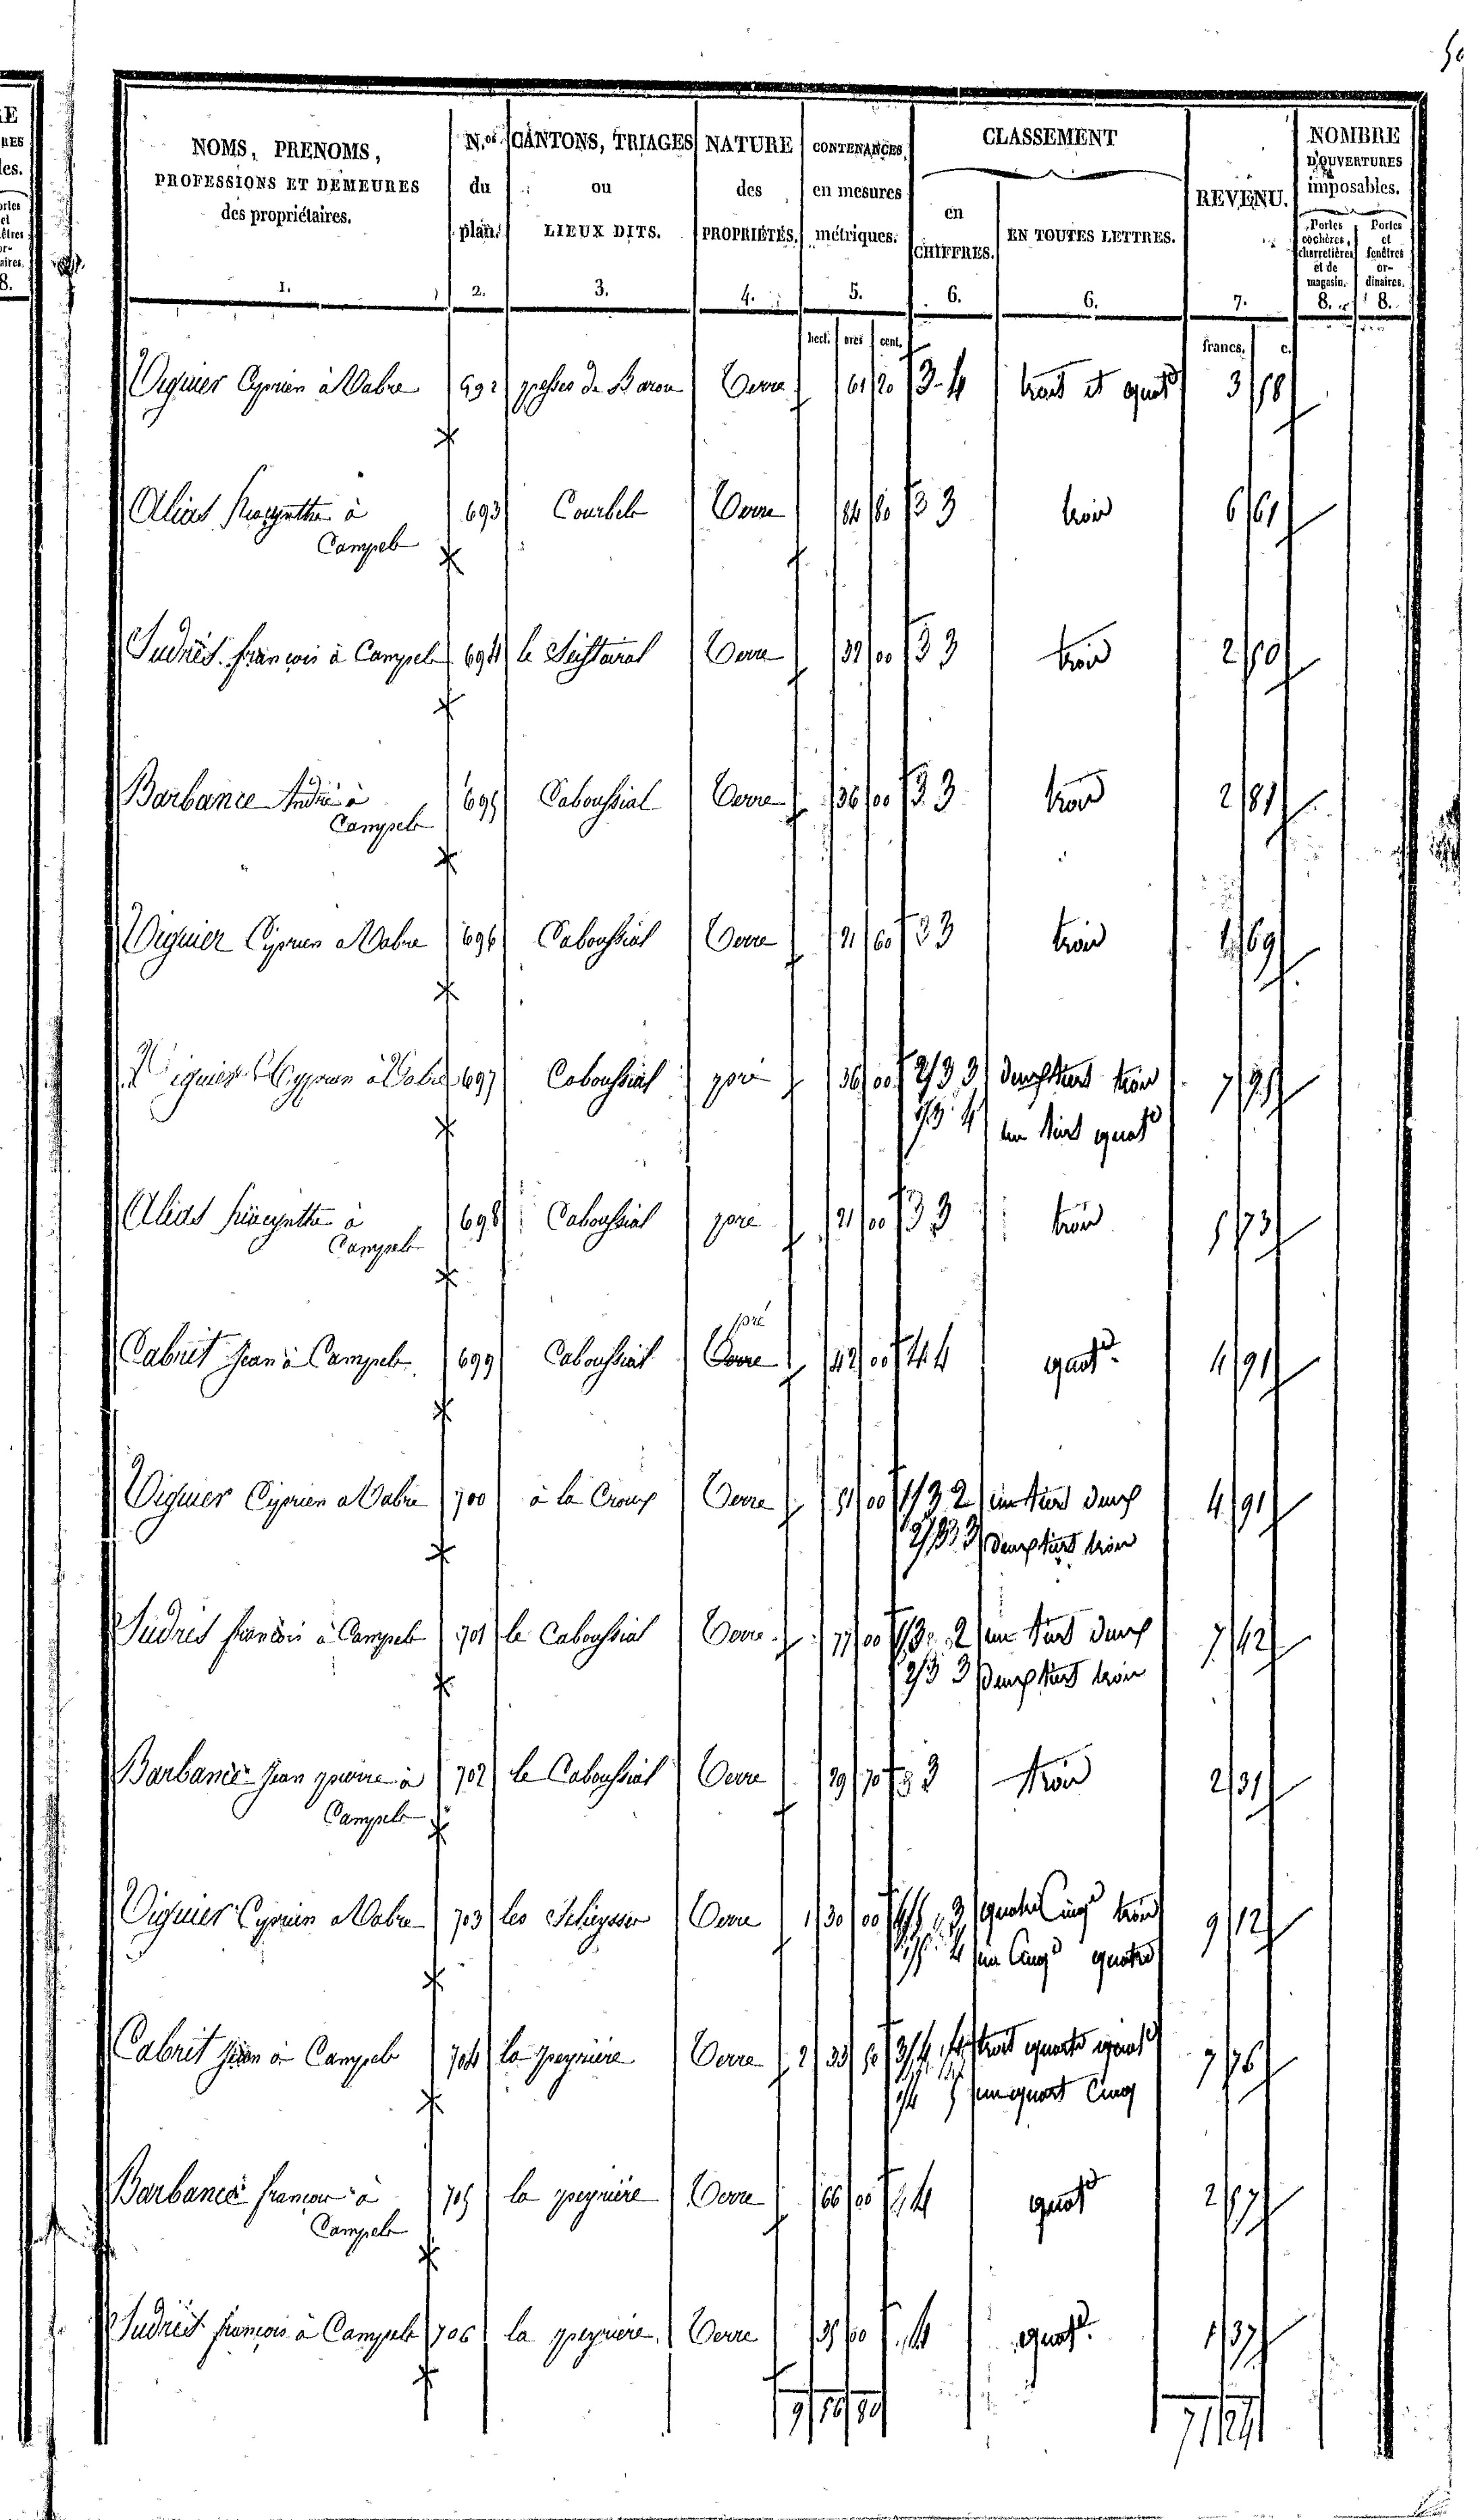 NOMS, PRENOMS, PROFESSIONS ET DEMEURES des propriétaires. | N.os du plan. | CANTONS, TRIAGES ou LIEUX DITS. | NATURE des PROPRIÉTÉS. | CONTENANCES, en mesures métriques. | CLASSEMENT en CHIFFRES. | EN TOUTES LETTRES. | REVENU. | NOMBRE D'OUVERTURES imposables. Portes cochères, charretières et de magasin. | Portes et fenêtres ordinaires.
1. 2. 3. 4. 5. 6. 6. 7. 8. 8.
hect. ares cent. francs. c.
Viguier Cyprien à Vabre 692 de Baron Terre 61 20 3-4 et quat 3 58
Alias hiacynthe à 693 Courbeb Terre 84 80 3 3 trois 6 61
Campels
Sudrès françois à Campels 694 le Terre 32 00 3 3 trois 2 50
Barbance André à 695 Caboussial Terre 36 00 3 3 trois 2 81
Campels
Viguier Ciprien a Vabre 696 Caboussial Terre 21 60 3 3 trois 1 69
Viguier Cyprien à Vabre 697 Caboussial pré 36 00 2/3 3 deux tiers trois
1/3 4 un tiers quat
Alias hiacynthe à 698 Caboussial pré 21 00 3 3 trois
Campels
Cabrit Jean à Campels 699 Caboussial pré 42 00 4 4 quat 4 91
Terre
Viguier Ciprien a Vabre 700 à la Croux Terre 51 00 1/3 2 un tiers deux 4 91
2/3 3 deux tiers trois
Sudrès françois à Campels 701 le Caboussial Terre 77 00 1/3 2 un tiers deux 7 42
2/3 3 deux tiers trois
Barbance Jean pierre à 702 le Caboussial Terre 29 70 3 3 trois 2 31
Campels
Viguier Cyprien a Vabre 703 les Terre 1 30 00 4/5 3 quatre Cinq trois 9 12
1/5 4 un Cinq quatre
Cabrit Jean à Campels 704 la peyrière Terre 2 33 50 3/4 4 trois quarts quat 7 76
1/4 5 un quart Cinq
Barbance françois à 705 la peyrière Terre 66 00 4 4 quat 2 57
Campels
Sudrès françois à Campels 706 la peyrière Terre 35 00 4 quat 1 37